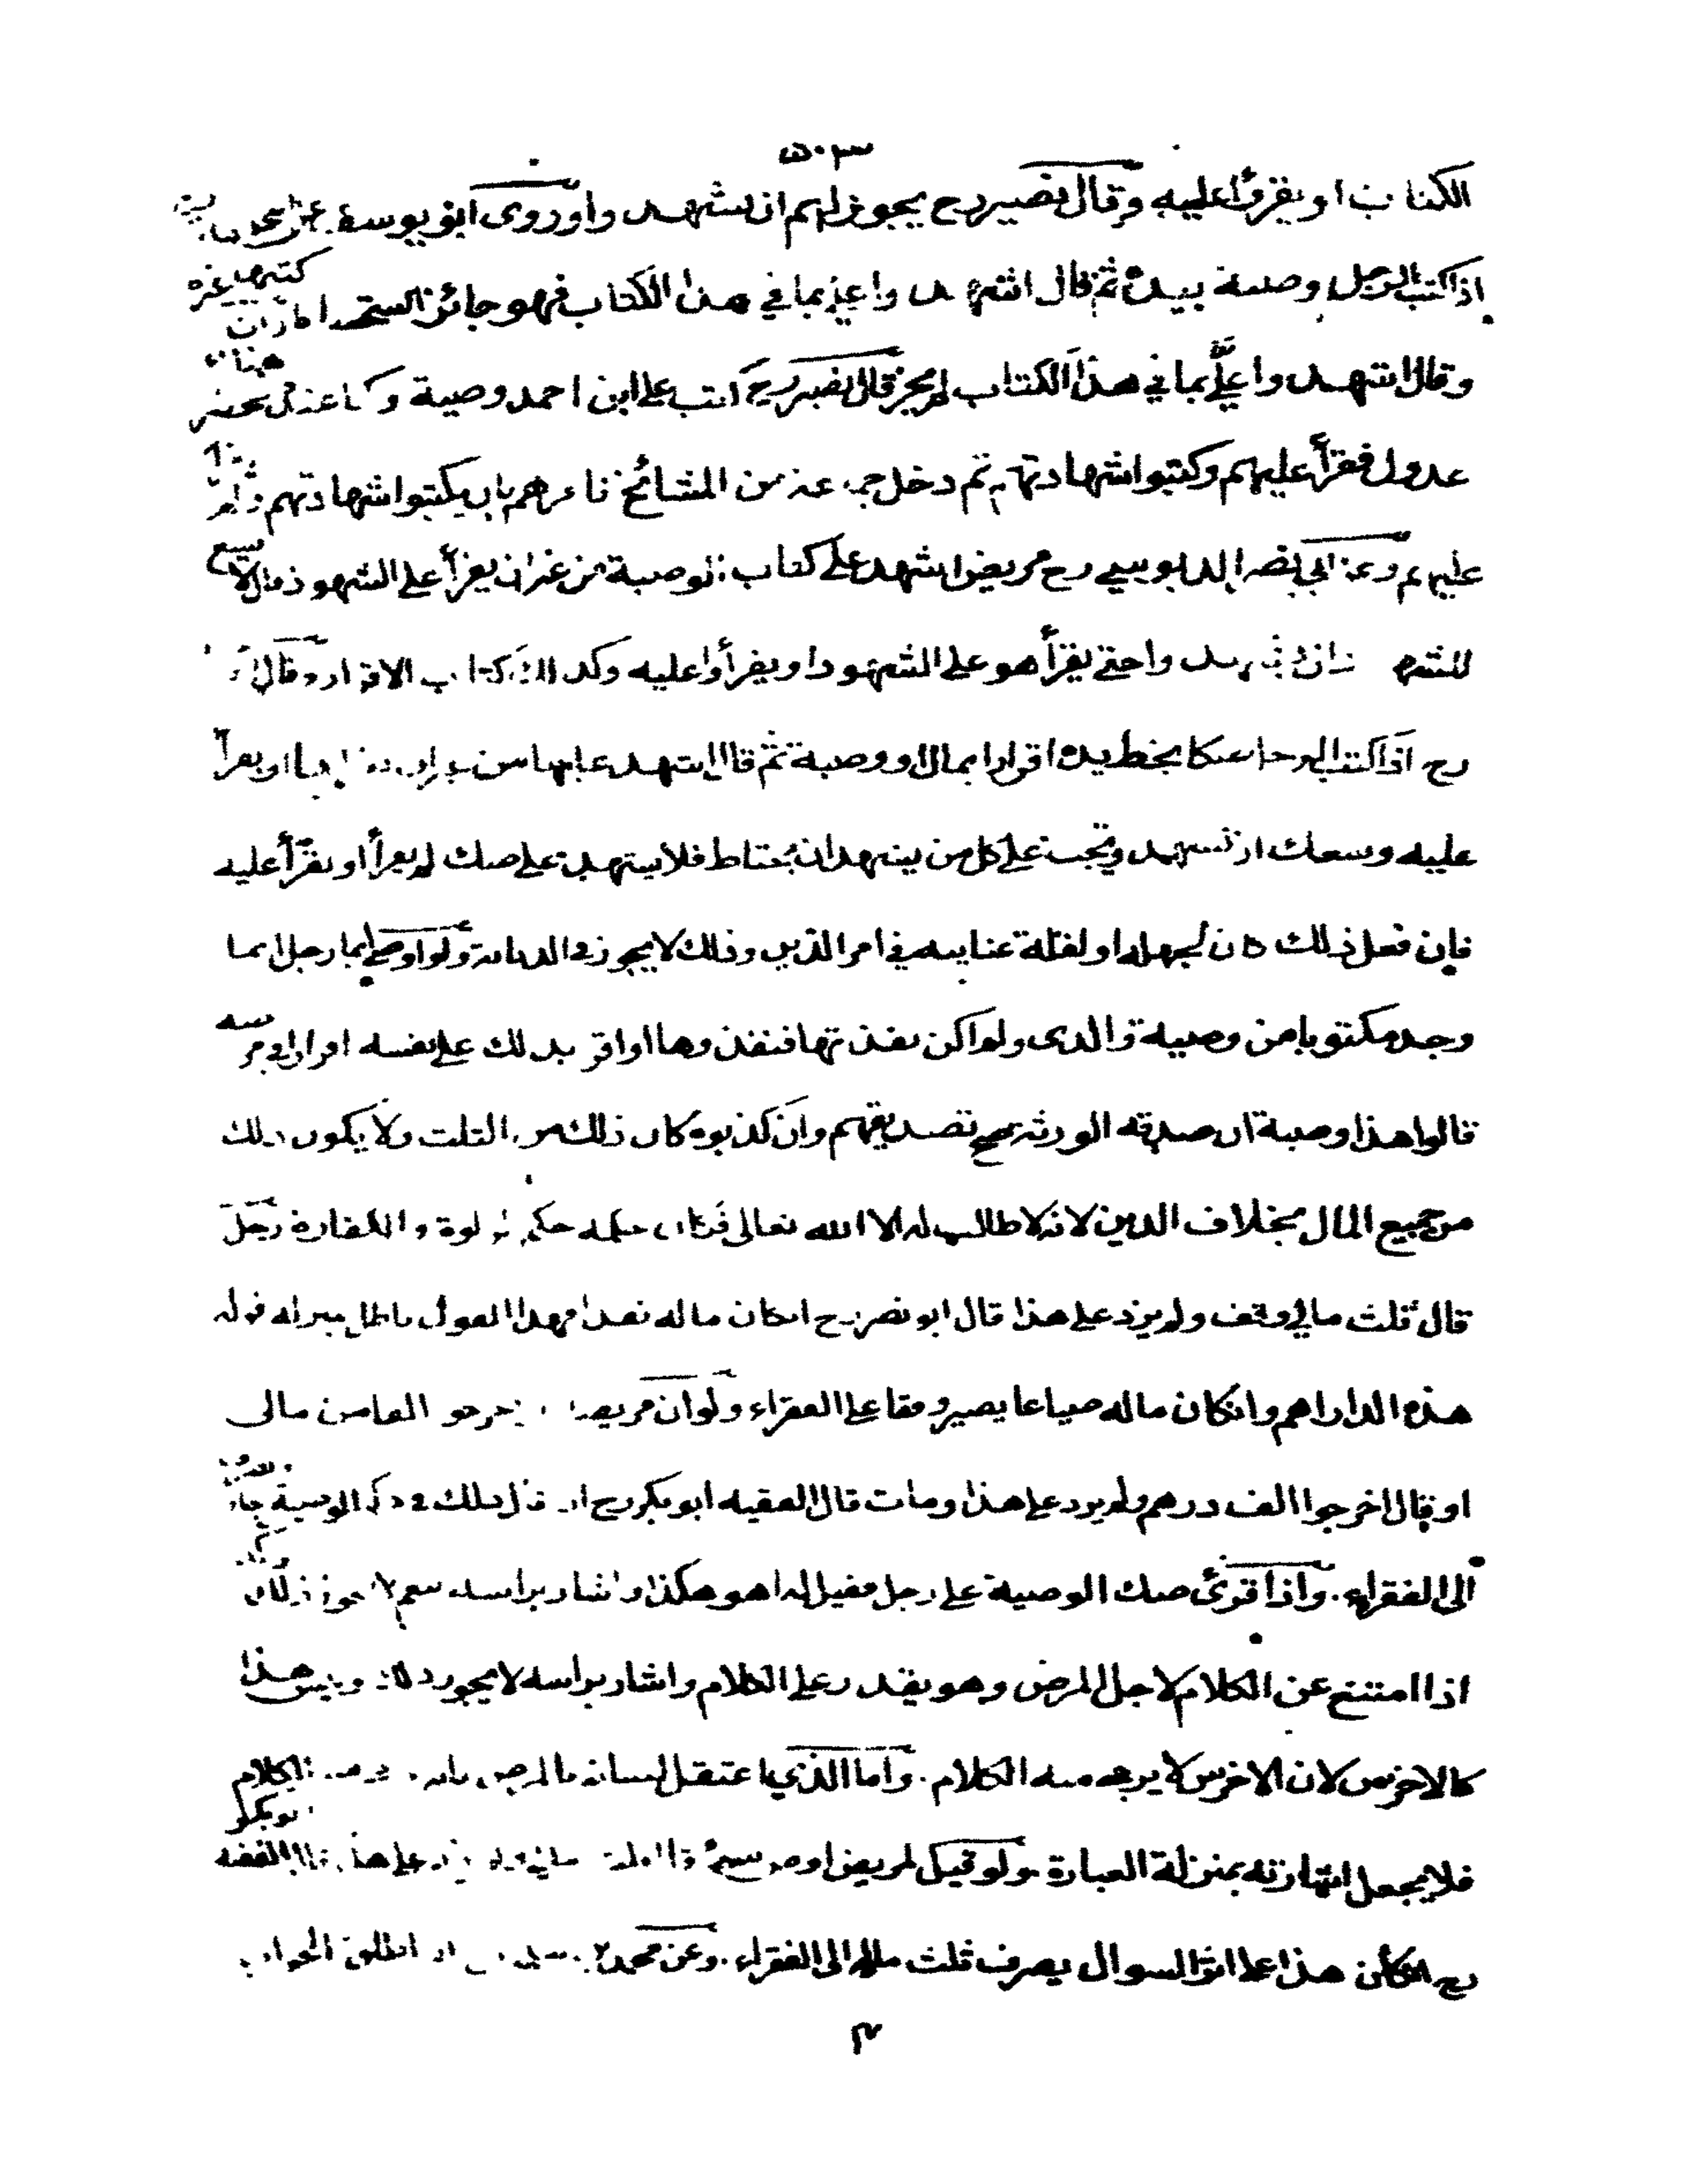 ٥٠٣
الكتاب او يقرؤا عليه وقال نصير رح يجوز لهم ان يشهدوا وروى ابو يوسف
اذا كتب الرجل وصية بيده ثم قال اشهدوا علي بما في هذا الكتاب فهو جائز استحسانا وان كتبها غيره
وقال اشهدوا علي بما في هذا الكتاب لم يجز قال نصير رح كتب علي ابن احمد وصية وكاغذ
عدول فقرأ عليهم وكتبوا شهادتهم ثم دخل جماعة من المشائخ فامرهم بان يكتبوا شهادتهم ولم
عليهم وعن ابي نصر الدبوسي رح مريض اشهد على كتاب الوصية من غير ان يقرأ على الشهود قال لا يسع
للشهود ان يشهدوا حتى يقرأ هو على الشهود او يقرأوا عليه وكذلك كتاب الاقرار وقال
رح اذا كتب الرجل صكا بخط يده اقرارا بمال او وصية ثم قال اشهد عليها من غير ان او يقرأ
عليه وسعك ان تشهد ويجب على كل من يشهد ان يحتاط فلا يشهدن على صك لم يقرأ او يقرأ عليه
فان فعل ذلك كان لجهله او لقلة عنايته في امر الدين وذلك لا يجوز في الديانة ولو اوصى ايما رجل بما
وجد مكتوبا من وصية والدي ولم اكن نفذتها فنفذوها او اقر بذلك على نفسه اقرارا في مرضه
قالوا هذا وصية ان صدقه الورثة صح تصديقهم وان كذبوه كان ذلك من الثلث ولا يكون ذلك
من جميع المال بخلاف الدين لانه لا طالب له الا الله تعالى فكان حكمه حكم الزكوة والكفارة رجل
قال ثلث مالي وقف ولم يزد على هذا قال ابو نصر رح ان كان ماله نقدا فهذا القول باطل بمنزلة قوله
هذه الدراهم وان كان ماله ضياعا يصير وقفا على الفقراء ولو ان مريضا اخرجوا الفا من مالي
او قال اخرجوا الف درهم ولم يزد على هذا ومات قال الفقيه ابو بكر رح ان قال ذلك في ذكر الوصية جاز
الى الفقراء. واذا قرئ صك الوصية على رجل فقيل له اهو هكذا واشار براسه نعم لا يجوز ذلك
اذا امتنع عن الكلام لاجل المرض وهو يقدر على الكلام واشار براسه لا يجوز ذلك وليس هذا
كالاخرس لان الاخرس لا يرجى منه الكلام. واما الذي اعتقل لسانه بالمرض الكلام
فلا يجعل اشارته بمنزلة العبارة ولو قيل لمريض اوص بشئ على هذا قال الفقيه ابو بكر
رح ان كان هذا على اثر السوال يصرف ثلث ماله الى الفقراء. وعن محمد انه اطلق الجواب